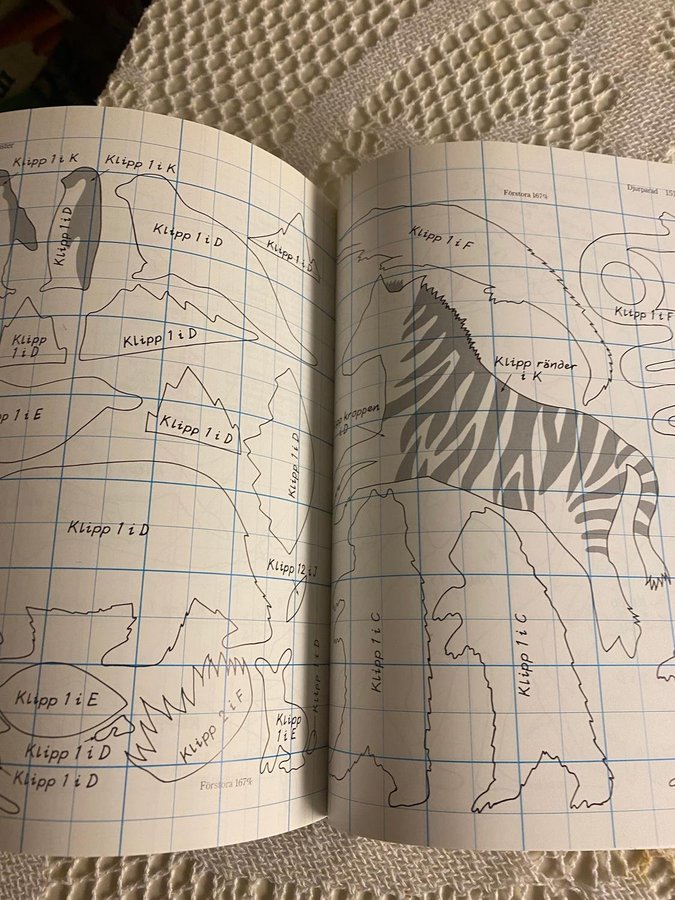 Klipp 1 i K
Klipp 1 i K
Klipp 1 i D
Klipp 1 i D
Klipp 1 i D
Klipp
1 i D
Klipp 1 i D
1 i E
Klipp 1 i D
Klipp 1 i D
Klipp 1 i D
Klipp 12 i J
Klipp 1 i E
Klipp 2 i F
Klipp
1 i E
Klipp 1 i D
Klipp 1 i D
Klipp 1 i D
Förstora 167%
Förstora 167%
Djurparad
Klipp 1 i F
Klipp 1 i F
Klipp ränder
i K
kroppen
i D
Klipp 1 i C
Klipp 1 i C